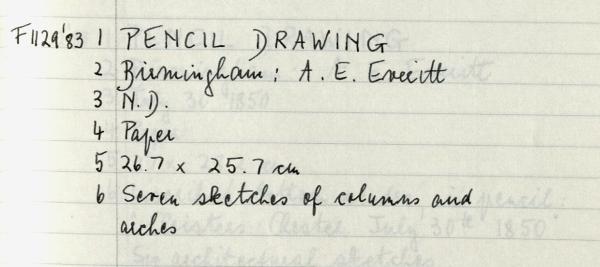 F1129'83 1 PENCIL DRAWING
2 Birmingham: A. E. Everitt
3 N.D.
4 Paper
5 26.7 x 25.7 cm
6 Seven sketches of columns and
arches